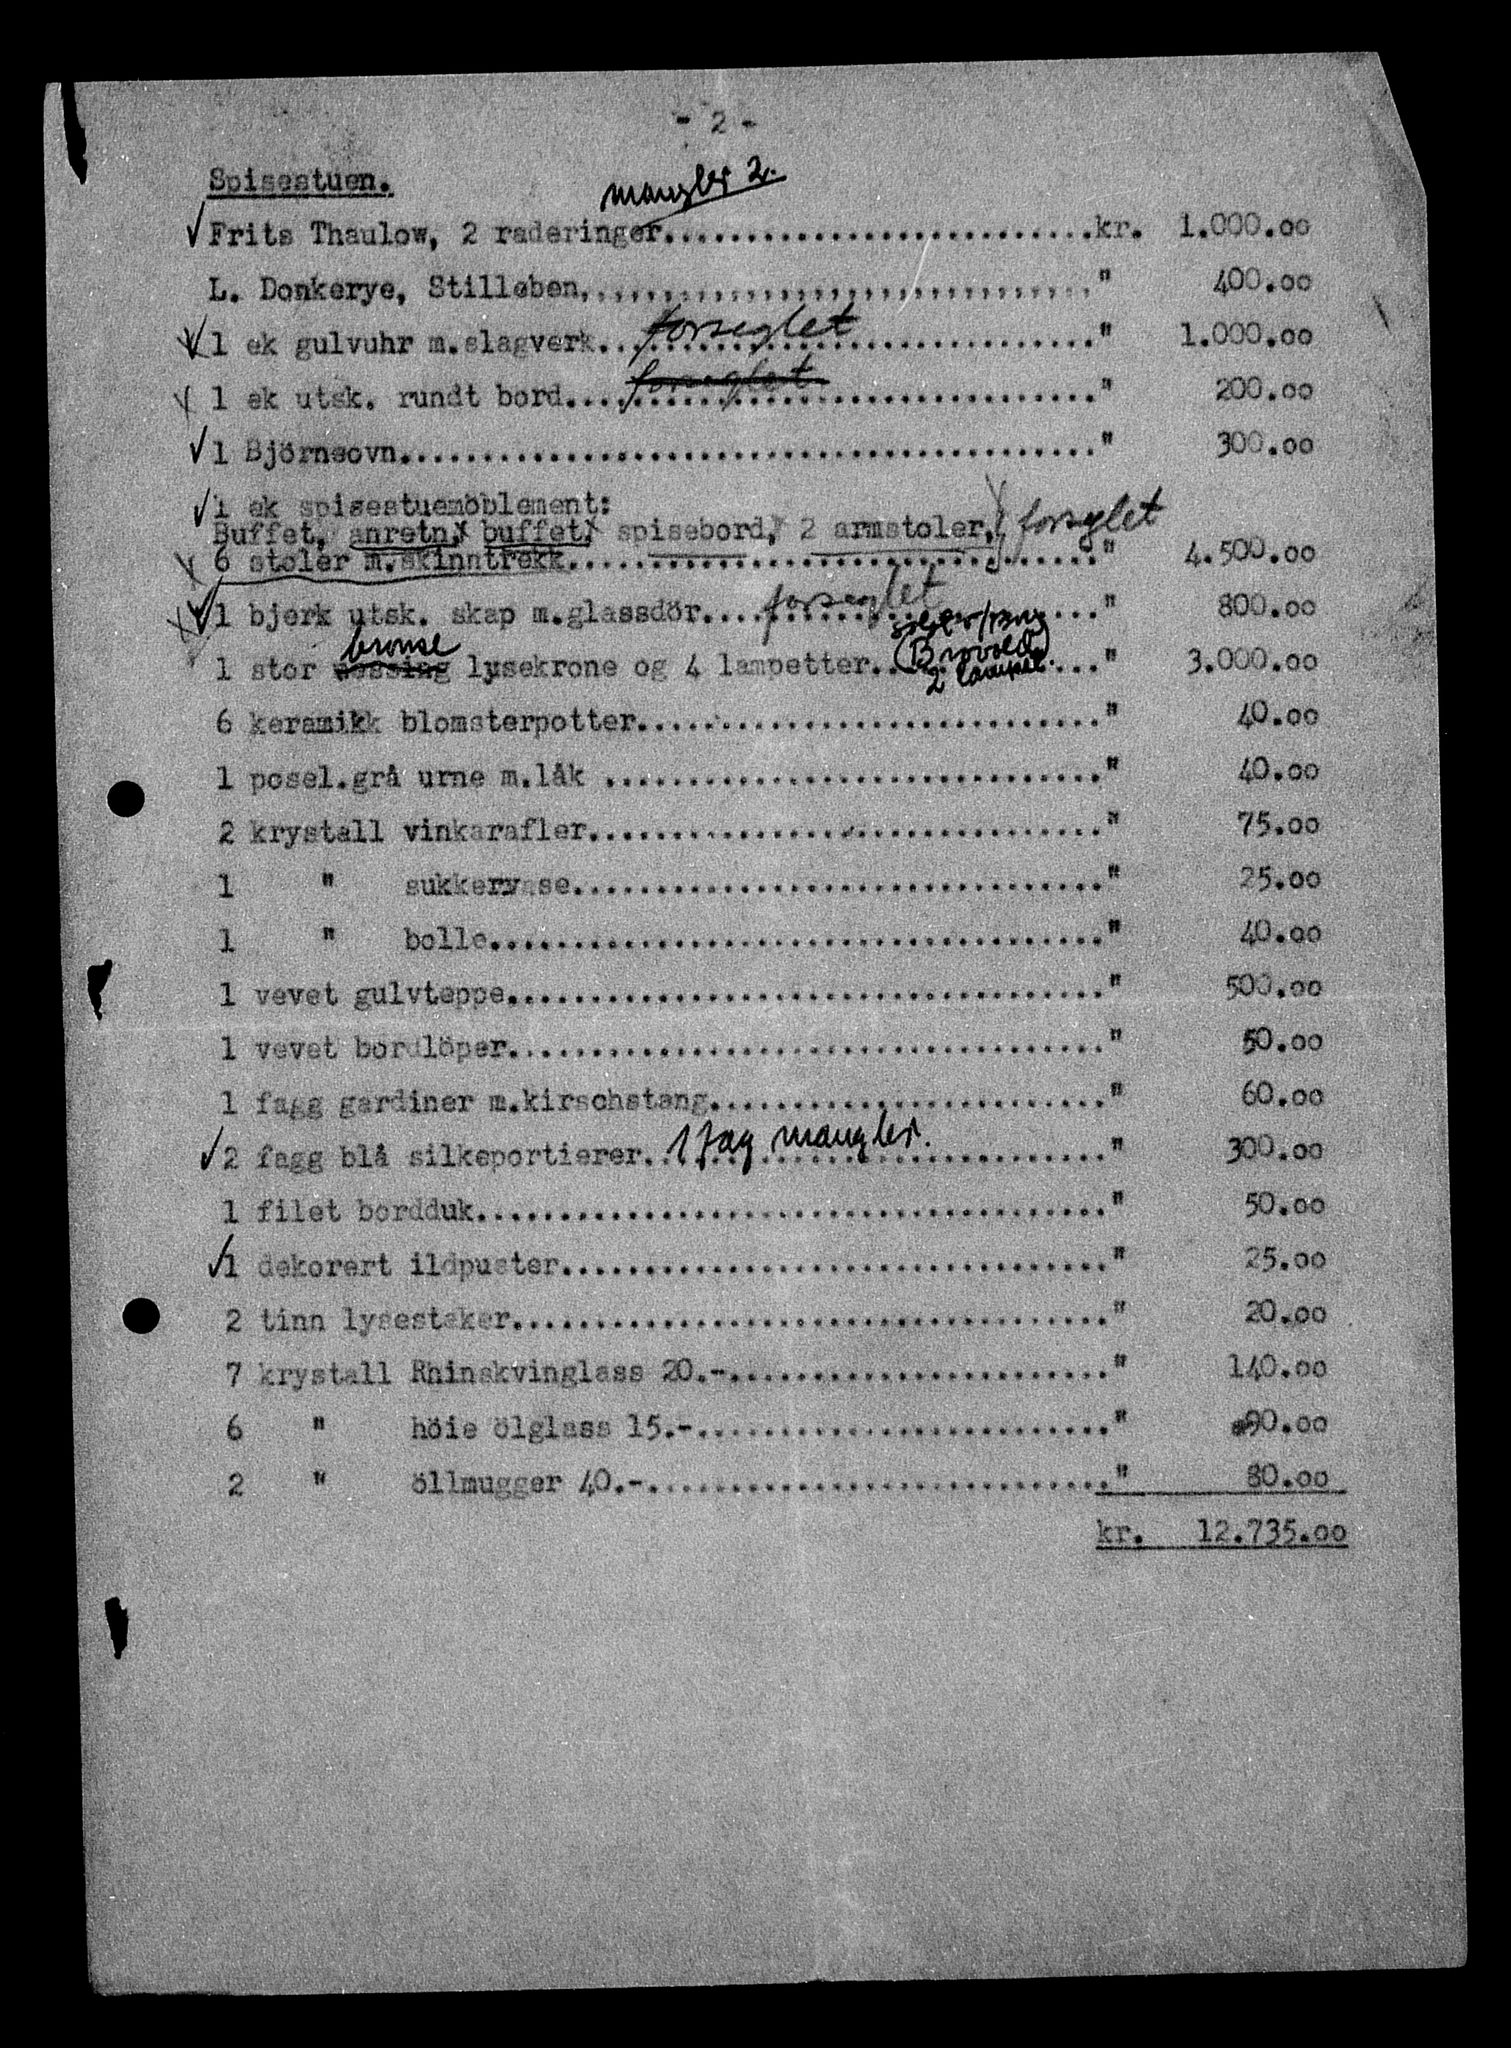 - 2 -
Spisestuen.
mangler 2.
Frits Thaulow, 2 raderinger..........................kr. 1.000.00
L. Donkerye, Stilleben,,,,,,,,,,,,,,,,,,,,,,,,,,,,,," 400.00
1 ek gulvuhr m.slagverk.. forseglet ................." 1.000.00
1 ek utsk. rundt bord.... forseglet ................." 200.00
1 Björneovn.........................................." 300.00
1 ek spisestuemöblement:
Buffet, anretn, buffet, spisebord, 2 armstoler, forseglet
6 stoler m.skinntrekk................................" 4.500.00
1 bjerk utsk. skap m.glassdör.... forseglet ........." 800.00
bronse
1 stor messing lysekrone og 4 lampetter.............." 3.000.00
2 lampet.
6 keramikk blomsterpotter............................" 40.00
1 posel.grå urne m.låk .............................." 40.00
2 krystall vinkarafler..............................." 75.00
1 " sukkervase......................................." 25.00
1 " bolle............................................" 40.00
1 vevet gulvteppe...................................." 500.00
1 vevet bordlöper...................................." 50.00
1 fagg gardiner m.kirschstang........................" 60.00
2 fagg blå silkeportierer.. 1 fag mangler. .........." 300.00
1 filet bordduk......................................" 50.00
1 dekorert ildpuster................................." 25.00
2 tinn lysestaker...................................." 20.00
7 krystall Rhinskvinglass 20.-......................." 140.00
6 " höie ölglass 15.-................................" 90.00
2 " öllmugger 40.-..................................." 80.00
kr. 12.735.00